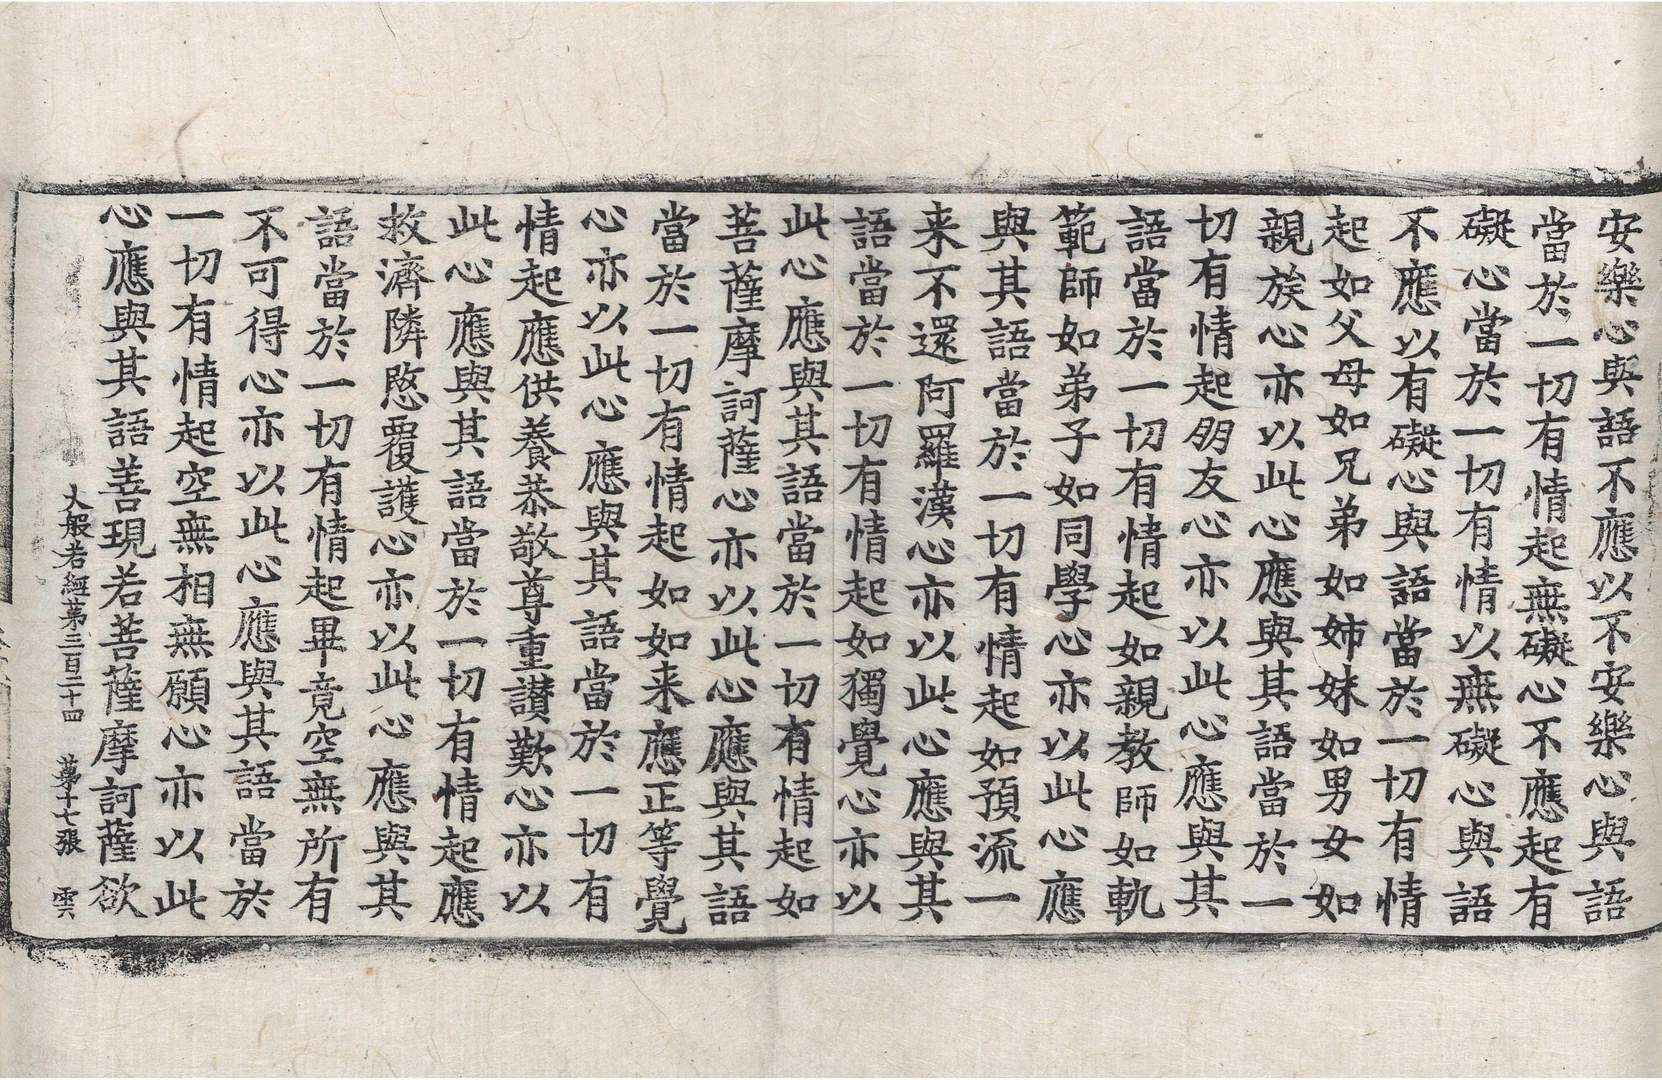 安樂心與語不應以不安樂心與語
當於一切有情起無礙心不應起有
礙心當於一切有情以無礙心與語
不應以有礙心與語當於一切有情
起如父母如兄弟如姉妹如男女如
親族心亦以此心應與其語當於一
切有情起朋友心亦以此心應與其
語當於一切有情起如親教師如軌
範師如弟子如同學心亦以此心應
與其語當於一切有情起如預流一
来不還阿羅漢心亦以此心應與其
語當於一切有情起如獨覺心亦以
此心應與其語當於一切有情起如
菩薩摩訶薩心亦以此心應與其語
當於一切有情起如如来應正等覺
心亦以此心應與其語當於一切有
情起應供養恭敬尊重讃歎心亦以
此心應與其語當於一切有情起應
救濟隣愍覆護心亦以此心應與其
語當於一切有情起畢竟空無所有
不可得心亦以此心應與其語當於
一切有情起空無相無願心亦以此
心應與其語善現若菩薩摩訶薩欲
大般若經第三百二十四 第十七張 雲